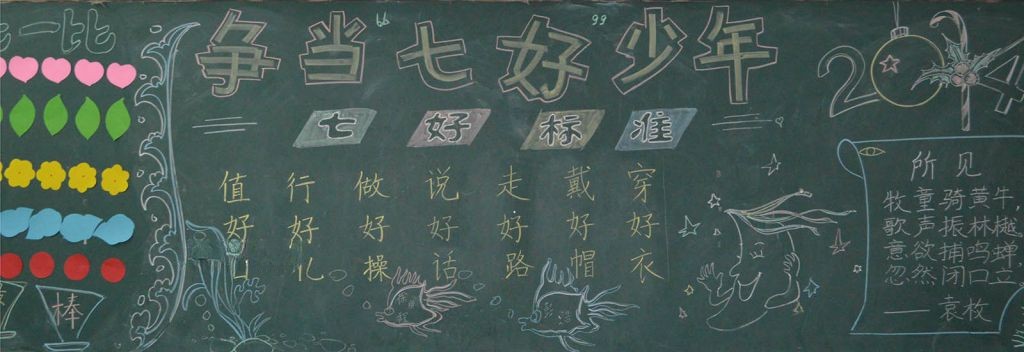 一比
棒
争当七好少年
七好标准
值好
行好
做好操
说好话
走好路
戴好帽
穿好衣
2014
所见
牧童骑黄牛,
歌声振林樾
意欲捕鸣蝉,
忽然闭口立
——袁枚